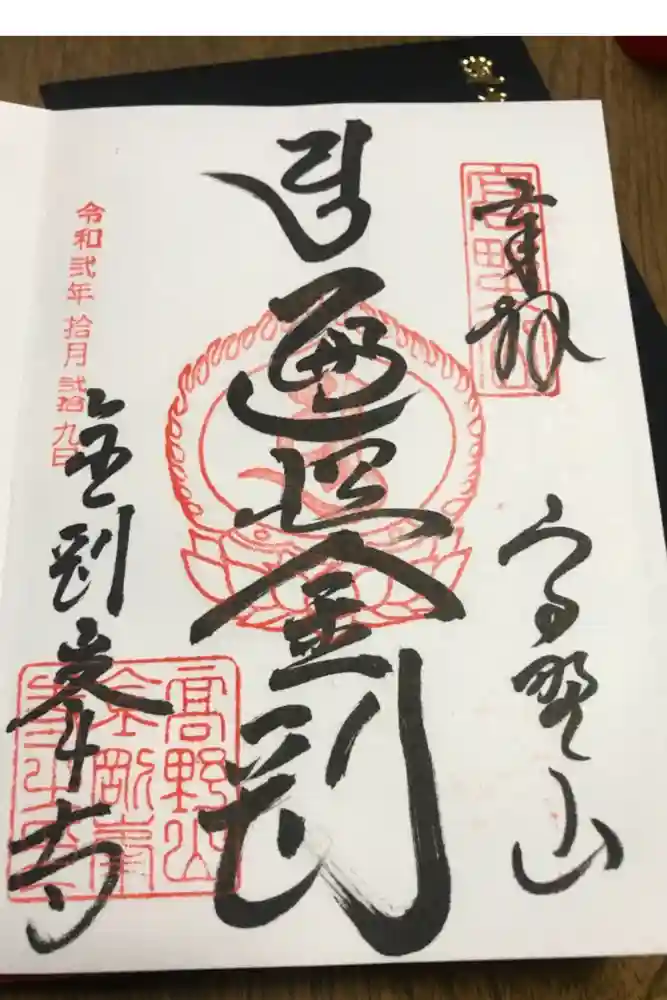 奉拝
高野山
遍照金剛
令和弐年拾月弐拾九日
金剛峯寺
高野山
金剛峯